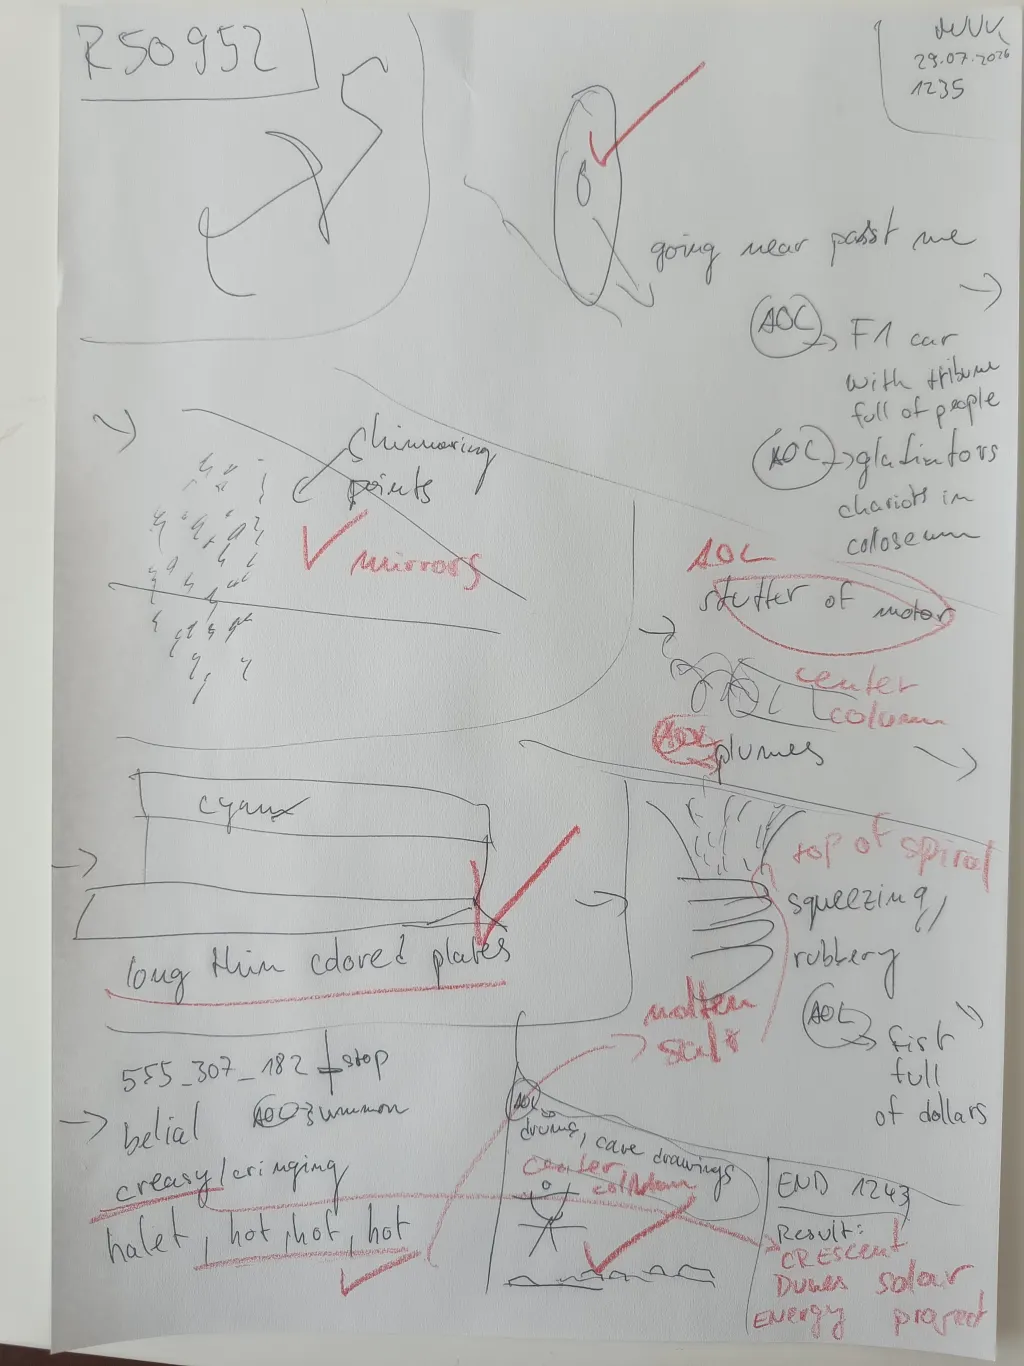 R50952
29.07.2026
1235
going near past me
AOL
F1 car
with tribune
full of people
AOL
gladiators
chariots in
coloseum
shimmering
points
mirrors
AOL
stutter of motor
center
column
AOL plumes
cyan
long thin colored plates
top of spiral
squeezing,
rubbery
AOL
fist
full
of dollars
molten
salt
555_307_182 stop
belial AOL summon
creasy/cringing
halet, hot, hot, hot
AOL
drums, cave drawings
center
column
END 1243
Result:
CREscent
Dunes solar
Energy project